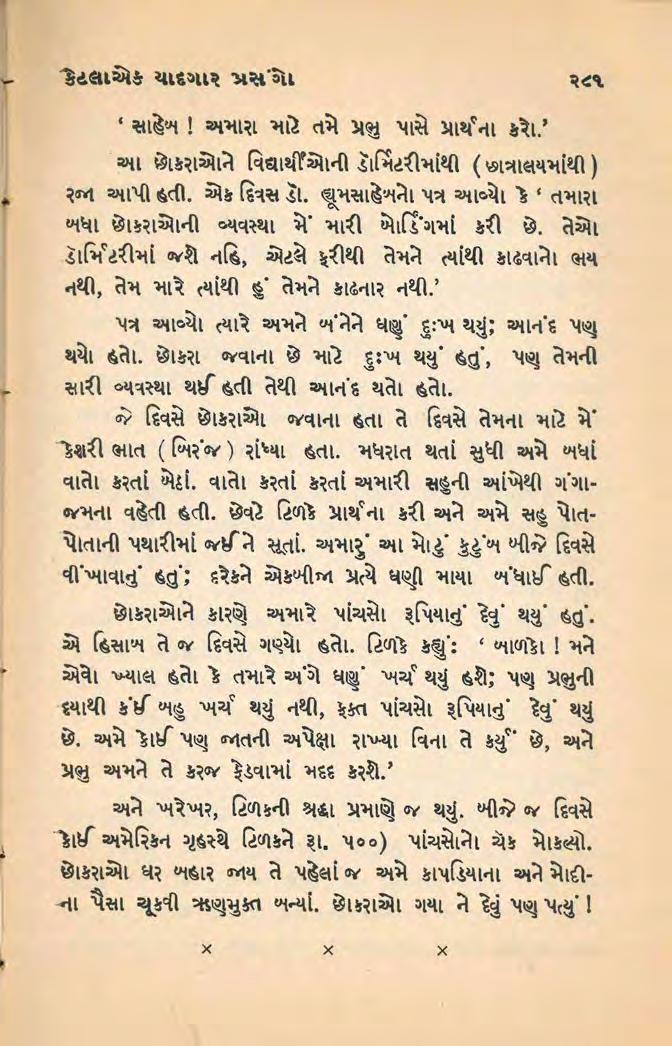 કેટલાએક યાદગાર પ્રસંગો ૨૮૧
‘ સાહેબ ! અમારા માટે તમે પ્રભુ પાસે પ્રાર્થના કરો.’
આ છોકરાઓને વિદ્યાર્થીઓની ડૉર્મિટરીમાંથી ( છાત્રાલયમાંથી )
રજા આપી હતી. એક દિવસ ડૉ. હ્યૂમસાહેબનો પત્ર આવ્યો કે ‘ તમારા
બધા છોકરાઓની વ્યવસ્થા મેં મારી બોર્ડિંગમાં કરી છે. તેઓ
ડૉર્મિટરીમાં જશે નહિ, એટલે ફરીથી તેમને ત્યાંથી કાઢવાનો ભય
નથી, તેમ મારે ત્યાંથી હું તેમને કાઢનાર નથી.’
પત્ર આવ્યો ત્યારે અમને બંનેને ઘણું દુઃખ થયું; આનંદ પણ
થયો હતો. છોકરા જવાના છે માટે દુઃખ થયું હતું, પણ તેમની
સારી વ્યવસ્થા થઈ હતી તેથી આનંદ થતો હતો.
જે દિવસે છોકરાઓ જવાના હતા તે દિવસે તેમના માટે મેં
કેશરી ભાત ( બિરંજ ) રાંધ્યા હતા. મધરાત થતાં સુધી અમે બધાં
વાતો કરતાં બેઠાં. વાતો કરતાં કરતાં અમારી સહુની આંખેથી ગંગા-
જમના વહેતી હતી. છેવટે ટિળકે પ્રાર્થના કરી અને અમે સહુ પોત-
પોતાની પથારીમાં જઈને સૂતાં. અમારું આ મોટું કુટુંબ બીજે દિવસે
વીંખાવાનું હતું; દરેકને એકબીજા પ્રત્યે ઘણી માયા બંધાઈ હતી.
છોકરાઓને કારણે અમારે પાંચસો રૂપિયાનું દેવું થયું હતું.
એ હિસાબ તે જ દિવસે ગણ્યો હતો. ટિળકે કહ્યું: ‘ બાળકો ! મને
એવો ખ્યાલ હતો કે તમારે અંગે ઘણું ખર્ચ થયું હશે; પણ પ્રભુની
દયાથી કંઈ બહુ ખર્ચ થયું નથી, ફક્ત પાંચસો રૂપિયાનું દેવું થયું
છે. અમે કોઈ પણ જાતની અપેક્ષા રાખ્યા વિના તે કર્યું છે, અને
પ્રભુ અમને તે કરજ ફેડવામાં મદદ કરશે.’
અને ખરેખર, ટિળકની શ્રદ્ધા પ્રમાણે જ થયું. બીજે જ દિવસે
કોઈ અમેરિકન ગૃહસ્થે ટિળકને રૂા. ૫૦૦) પાંચસોનો ચૅક મોકલ્યો.
છોકરાઓ ઘર બહાર જાય તે પહેલાં જ અમે કાપડિયાના અને મોદી-
ના પૈસા ચૂકવી ઋણમુક્ત બન્યાં. છોકરાઓ ગયા ને દેવું પણ પત્યું !
× × ×